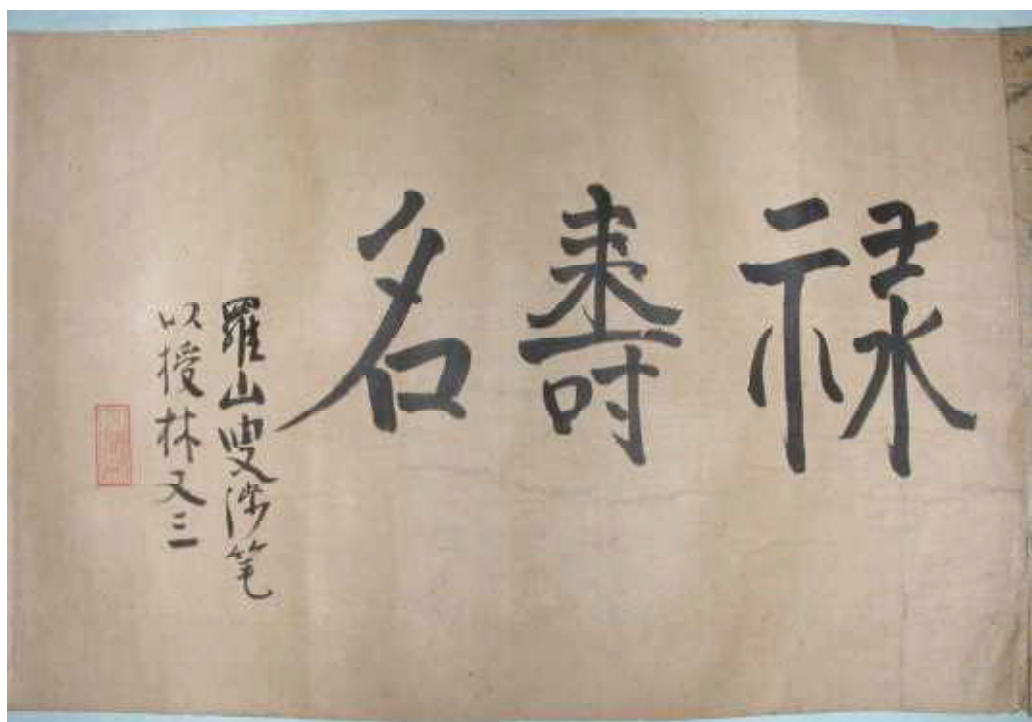 禄壽名
羅山叟渉笔
以授林又三